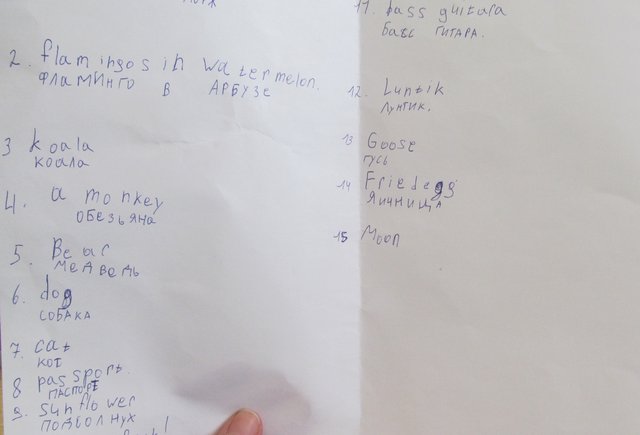 2. flamingos in watermelon.
ФЛАМИНГО В АРБУЗЕ
3 koala
КОАЛА
4. a monkey
ОБЕЗЬЯНА
5. Bear
МЕДВЕДЬ
6. dog
СОБАКА
7. cat
КОТ
8 passport.
ПАСПОРТ
9. sunflower
ПОДСОЛНУХ
11. bass guitara
бас ГИТАРА.
12. Luntik
ЛУНТИК.
13 Goose
ГУСЬ
14 Friedegg
ЯИЧНИЦА
15 Moon